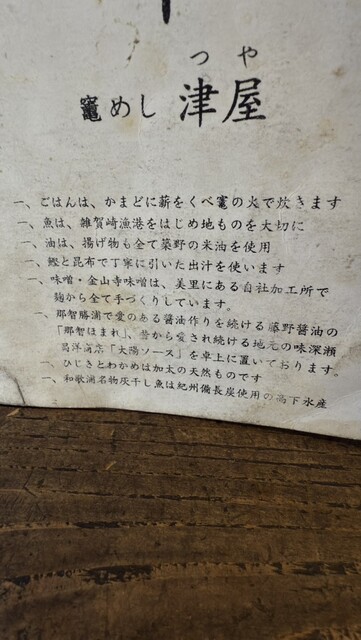 つや
竈めし 津屋
一、ごはんは、かまどに薪をくべ竈の火で炊きます
一、魚は、雑賀崎漁港をはじめ地ものを大切に
一、油は、揚げ物も全て築野の米油を使用
一、鰹と昆布で丁寧に引いた出汁を使います
一、味噌・金山寺味噌は、美里にある自社加工所で
麹から全て手づくりしています。
一、那智勝浦で愛のある醤油作りを続ける藤野醤油の
「那智ほまれ」、昔から愛され続ける地元の味深瀬
昌洋商店「太陽ソース」を卓上に置いております。
一、ひじきとわかめは加太の天然ものです
一、和歌浦名物灰干し魚は紀州備長炭使用の高下水産